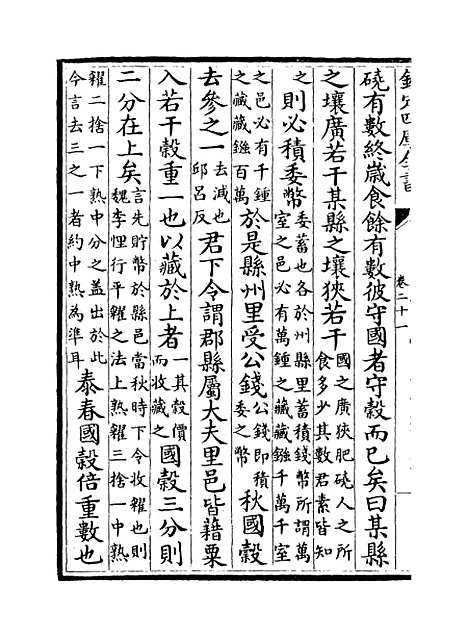 欽定四庫全書 卷二十一
磽有數終歲食餘有數彼守國者守穀而已矣曰某縣
之壤廣若干某縣之壤狹若干國之廣狹肥磽人之所食多少其數君素皆知
之則必積委幣委蓄也各於州縣里蓄積錢幣所謂萬室之邑必有萬鍾之藏藏鏹千萬千室
之邑必有千鍾之藏藏鏹百萬於是縣州里受公錢公錢即積委之幣秋國穀
去參之一去減也邱呂反君下令謂郡縣屬大夫里邑皆藉粟
入若干穀重一也以藏於上者一其穀價而收藏之國穀三分則
二分在上矣言先貯幣於縣邑當秋時下令收糴也則魏李悝行平糴之法上熟糴三捨一中熟
糴二捨一下熟中分之蓋出於此今言去三之一者約中熟為準耳泰春國穀倍重數也